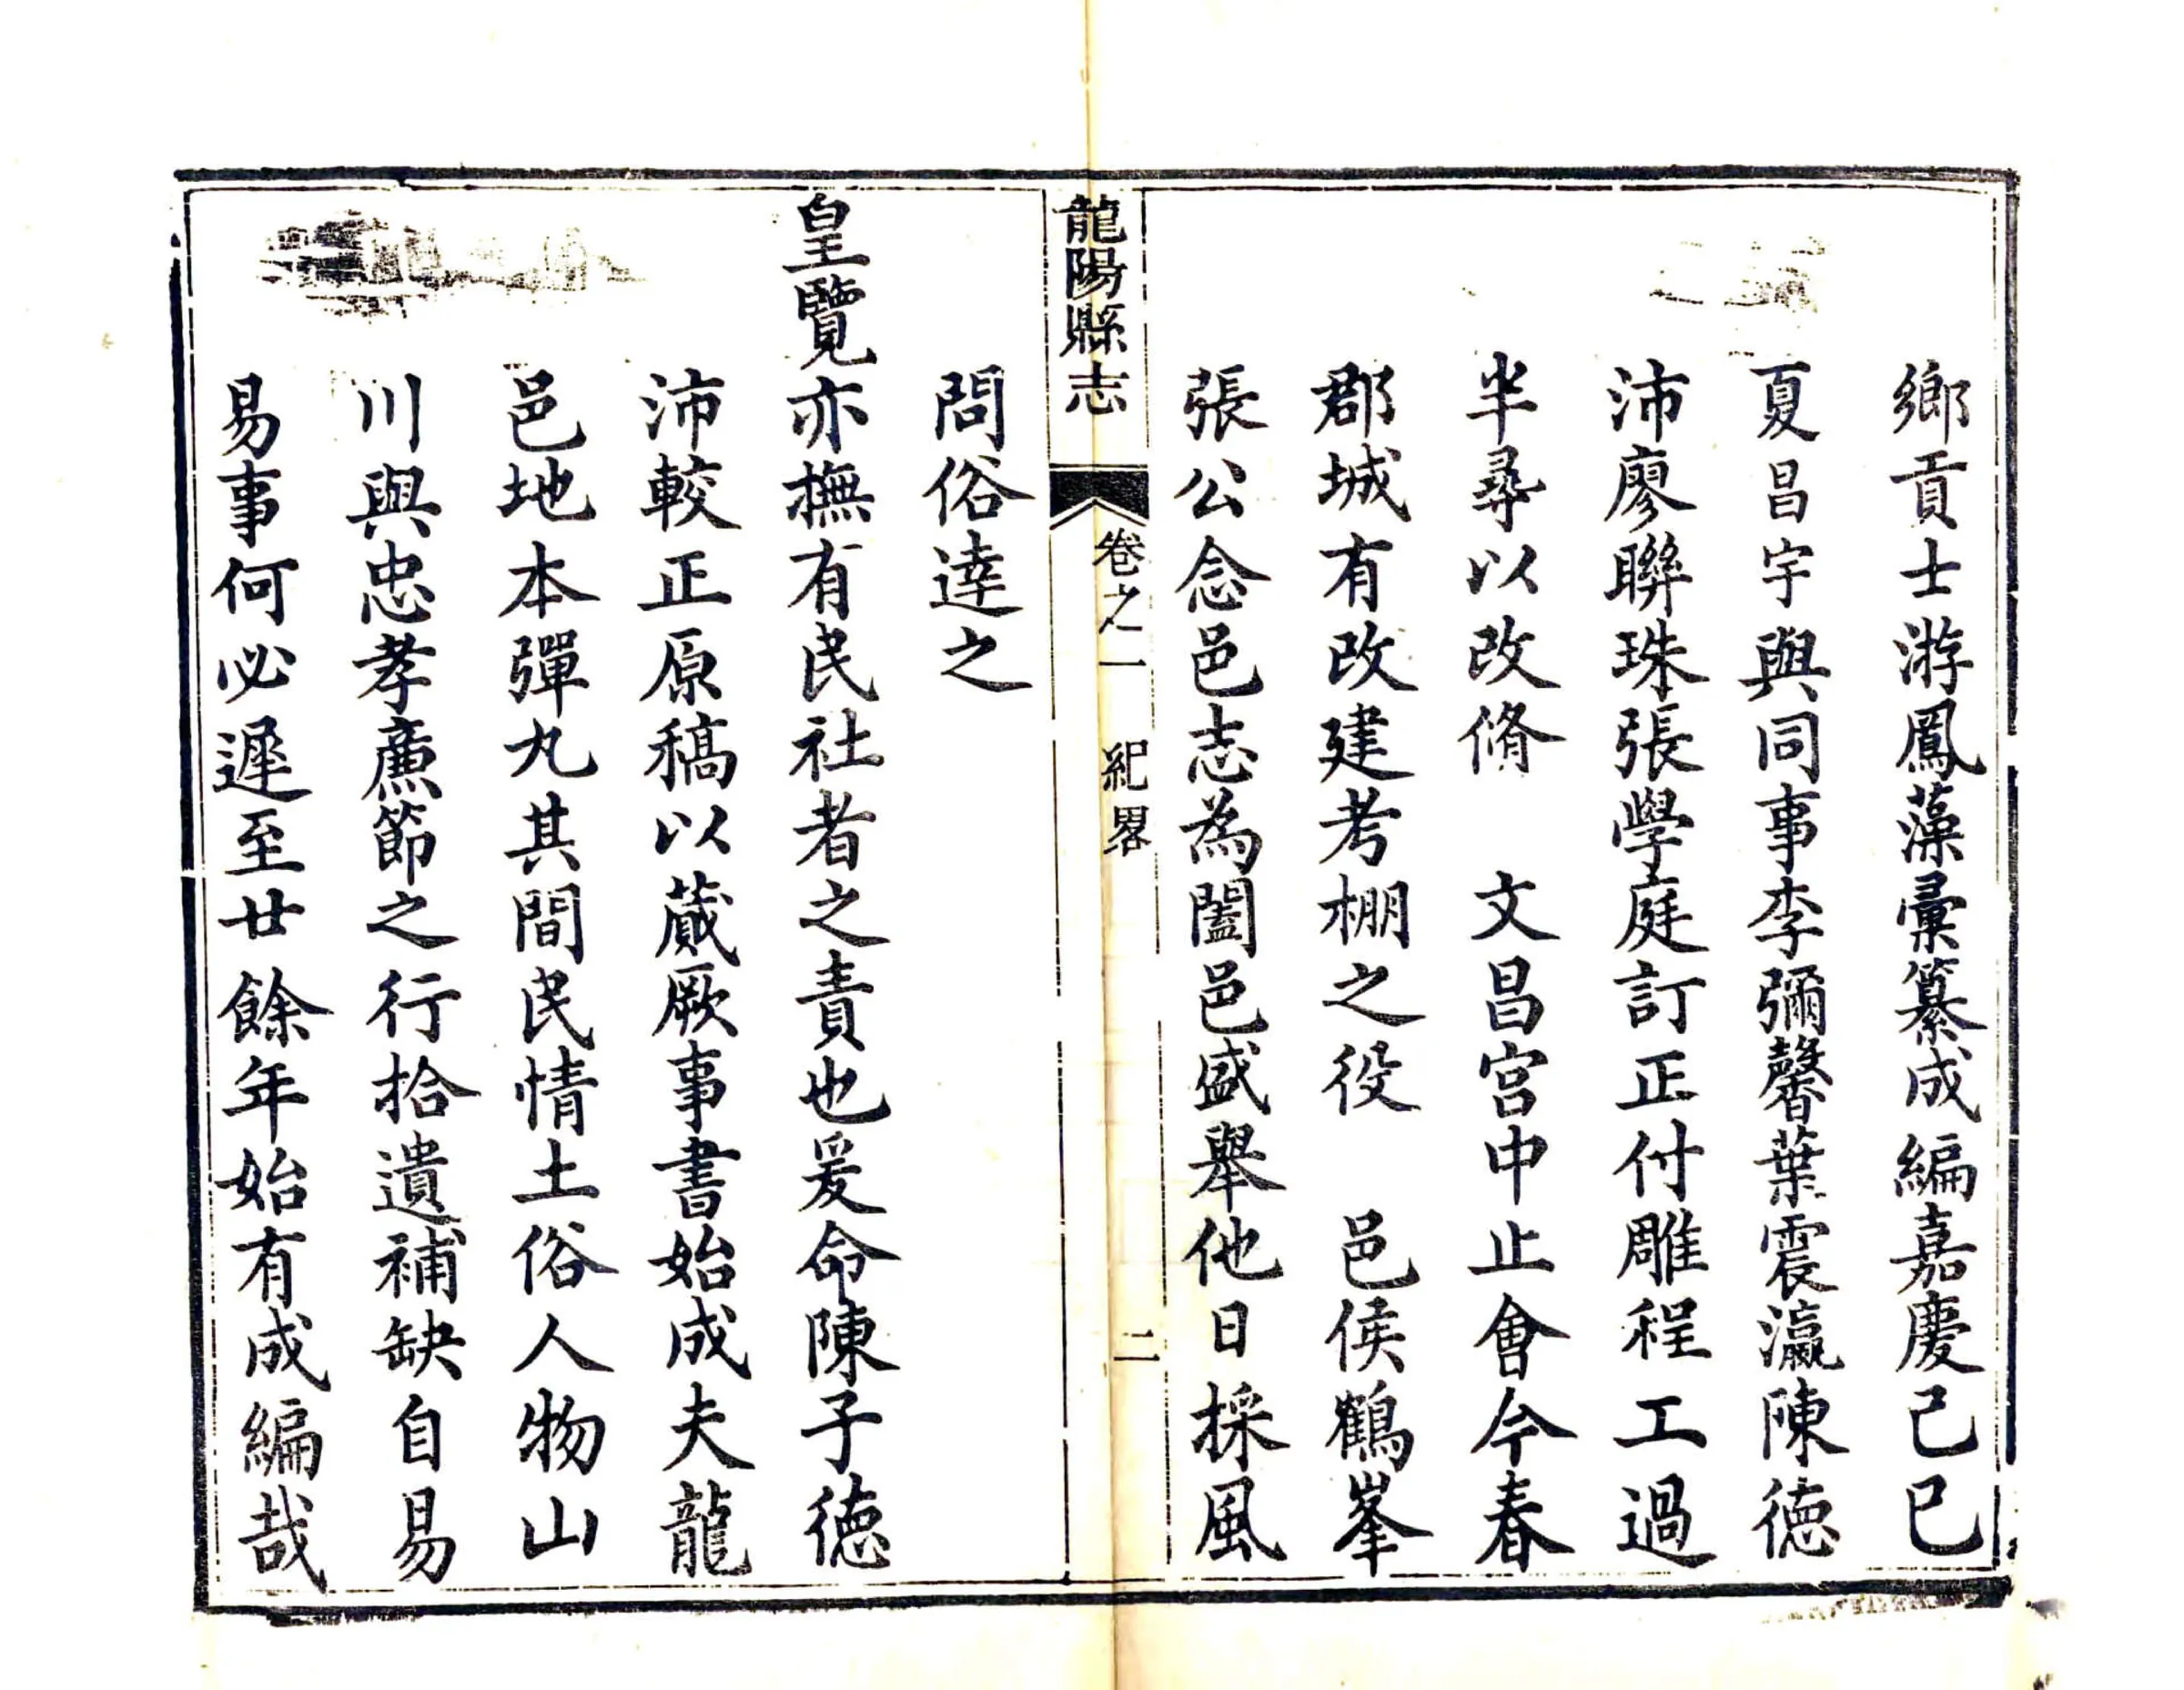 鄉貢士游鳳藻彙纂成編嘉慶己巳
夏昌宇與同事李彌馨葉震瀛陳德
沛廖聯珠張學庭訂正付雕程工過
半尋以改脩　文昌宮中止會今春
郡城有改建考棚之役　邑侯鶴峯
張公念邑志為闔邑盛舉他日採風
龍陽縣志　卷之一　紀畧　二
問俗達之
皇覽亦撫有民社者之責也爰命陳子德
沛較正原稿以蕆厥事書始成夫龍
邑地本彈丸其間民情土俗人物山
川與忠孝廉節之行拾遺補缺自易
易事何必遲至廿餘年始有成編哉